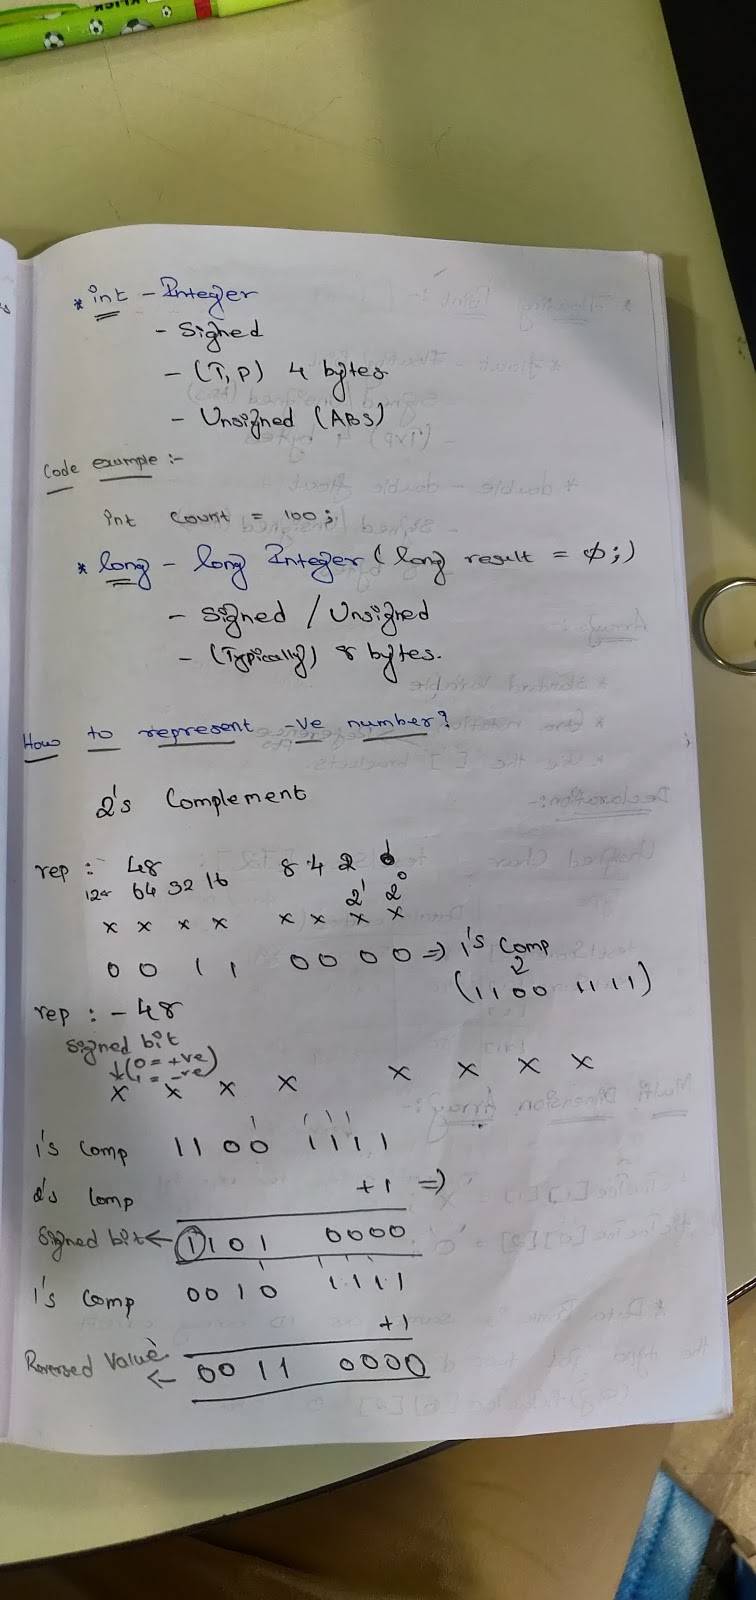 * int - Integer
- Signed
- (T,P) 4 bytes
- Unsigned (ABS)
Code example :-
int count = 100;
* long - long Integer ( long result = 0;)
- Signed / Unsigned
- (Typically) 8 bytes.
How to represent -ve number?
2's Complement
rep : 48 8 4 2
128 64 32 16 2¹ 2⁰
x x x x x x x x
0 0 1 1 0 0 0 0 => 1's comp
(1100 1111)
rep : - 48
Signed bit
↓(0 = +ve)
(1 = -ve)
x x x x x x x x
1's Comp 1100 1111
2's Comp +1 =>
Signed bit ← 1101 0000
1's Comp 0010 1111
+1
Reversed Value ← 0011 0000